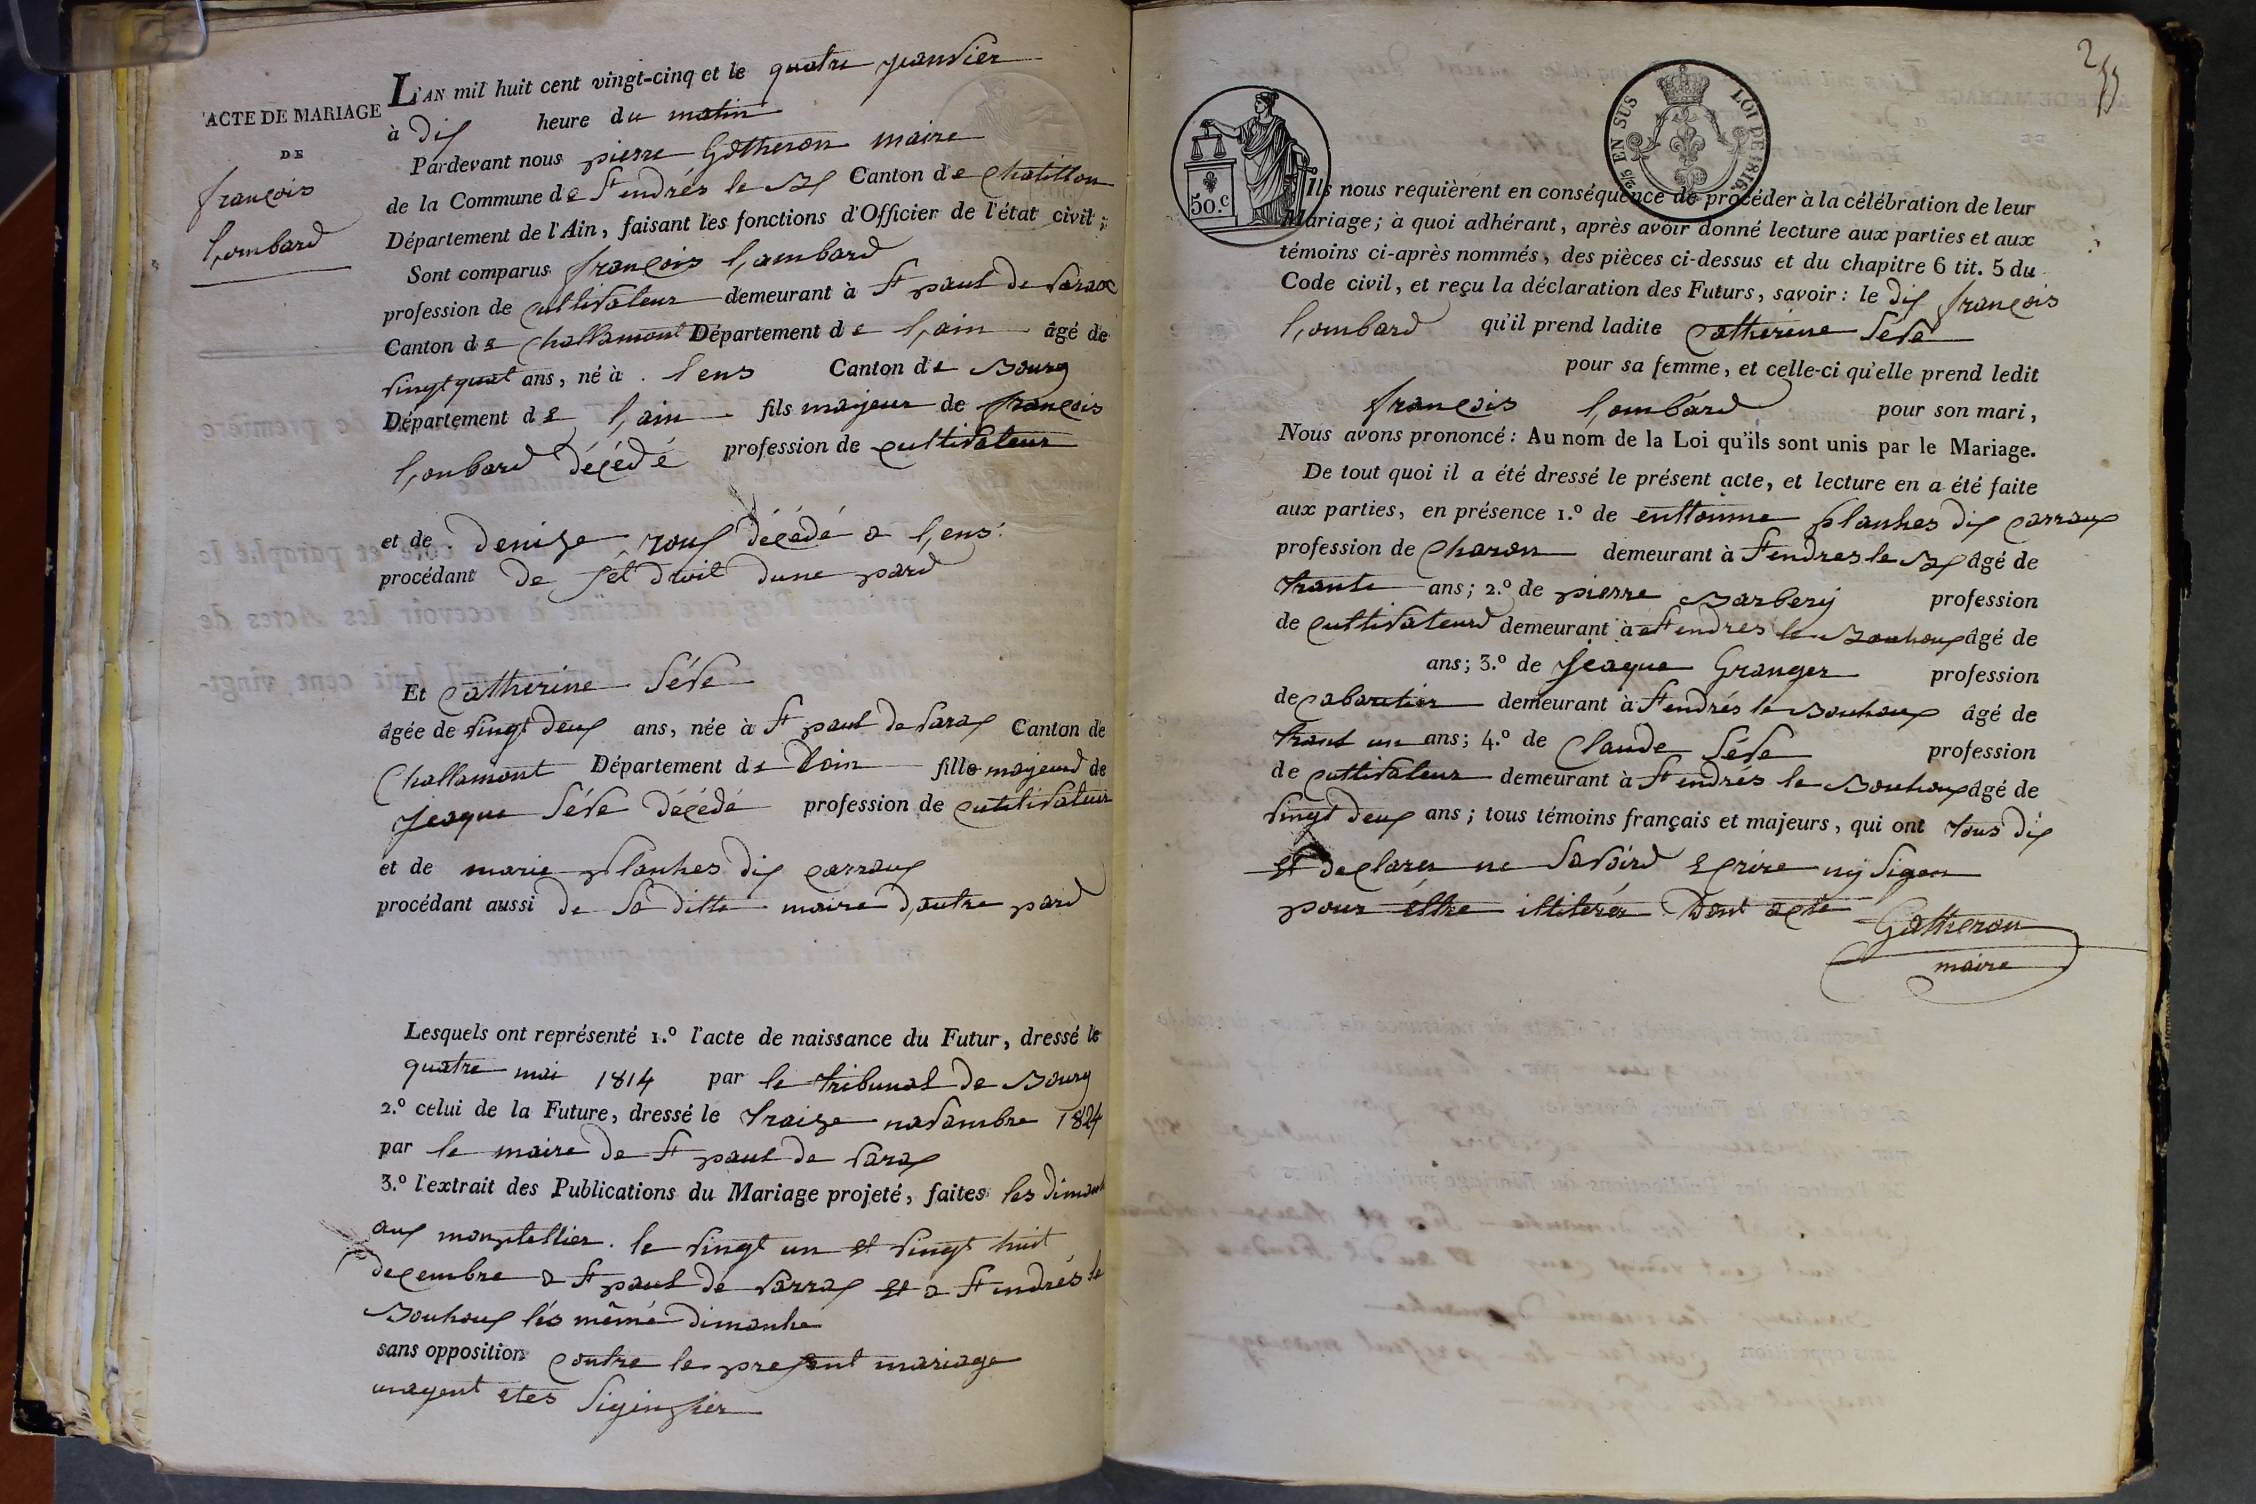 ACTE DE MARIAGE
DE
françois
Lombard
L'AN mil huit cent vingt-cinq et le quatre jeanvier
à dix heure du matin
Pardevant nous pierre Gotheron maire
de la Commune de St endrés le Bx Canton de Chatillon
Département de l'Ain, faisant les fonctions d'Officier de l'état civil;
Sont comparus françois Lombard
profession de cultivateur demeurant à St paul de varax
Canton de Challamont Département de l,ain âgé de
vingt quat ans, né à lens Canton de Bourg
Département de l,ain fils majeur de françois
Lombard décédé profession de cultivateur
et de denise roux décédé a l,ens
procédant de set droit dune pard
Et Catherine Séve
âgée de vingt deux ans, née à St paul de varax Canton de
Challamont Département de l'ain fille majeurd de
Jeaque Séve décédé profession de cutilivateur
et de marie planches dix carraux
procédant aussi de sa ditte maire d,autre pard
Lesquels ont représenté 1.º l'acte de naissance du Futur, dressé le
quatre mai 1814 par le tribunal de Bourg
2.º celui de la Future, dressé le traize novambre 1824
par le maire de St paul de varax
3.º l'extrait des Publications du Mariage projeté, faites les dimanch
aux monptellier. le vingt un et vingt huit
decembre a St paul de varrax et a St endrés le
Bouhoux lés mêmé dimanhe
sans opposition contre le present mariage
unayent etes
2
50.c
2/5 EN SUS LOI DE 1816.
Ils nous requièrent en conséquence de procéder à la célébration de leur
Mariage; à quoi adhérant, après avoir donné lecture aux parties et aux
témoins ci-après nommés, des pièces ci-dessus et du chapitre 6 tit. 5 du
Code civil, et reçu la déclaration des Futurs, savoir: le dix françois
Lombard qu'il prend ladite Catherine Séve
pour sa femme, et celle-ci qu'elle prend ledit
françois Lombard pour son mari,
Nous avons prononcé: Au nom de la Loi qu'ils sont unis par le Mariage.
De tout quoi il a été dressé le présent acte, et lecture en a été faite
aux parties, en présence 1.º de enttoinne planhes dix carraux
profession de Charon demeurant à St endres le Bx âgé de
trante ans; 2.º de pierre Barbery profession
de cultivateurd demeurant à St endrés le Bouhoux âgé de
ans; 3.º de Jeaque Granger profession
de cabaretier demeurant à St endrés le Bouhoux âgé de
trant un ans; 4.º de Claude Séve profession
de cultivateur demeurant à St endrés le Bouhoux âgé de
vingt deux ans; tous témoins français et majeurs, qui ont tous dix
et declarer ne savoird ecrire ny signer
pour éttre illiterér Dont acte
Gotheron
maire